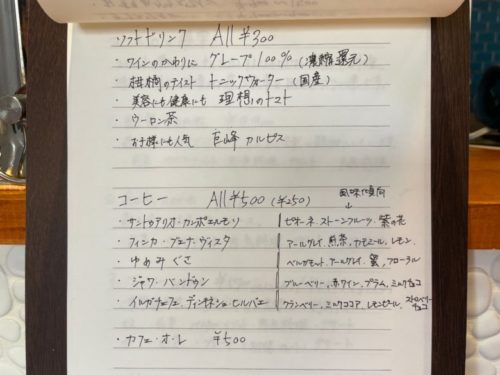 ソフトドリンク All ¥300
・ワインのかわりに グレープ100%(濃縮還元)
・柑橘のテイスト トニックウォーター(国産)
・美容にも健康にも 理想のトマト
・ウーロン茶
・お子様にも人気 巨峰カルピス
コーヒー All ¥500 (¥250) 風味の傾向
↓
・サントゥアリオ・カンポエルモソ ピオーネ、ストーンフルーツ、紫の花
・フィンカ・ブエナ・ヴィスタ アールグレイ、煎茶、カモミール、レモン
・ゆめみぐさ ベルガモット、アールグレイ、蜜、フローラル
・ジャワ・バンドゥン ブルーベリー、赤ワイン、プラム、ミルクチョコ
・イルガチェフェ・ディンキネシュ・ヒルバエ クランベリー、ミルクココア、レモンピール、ストロベリーチョコ
・カフェ・オ・レ ¥500